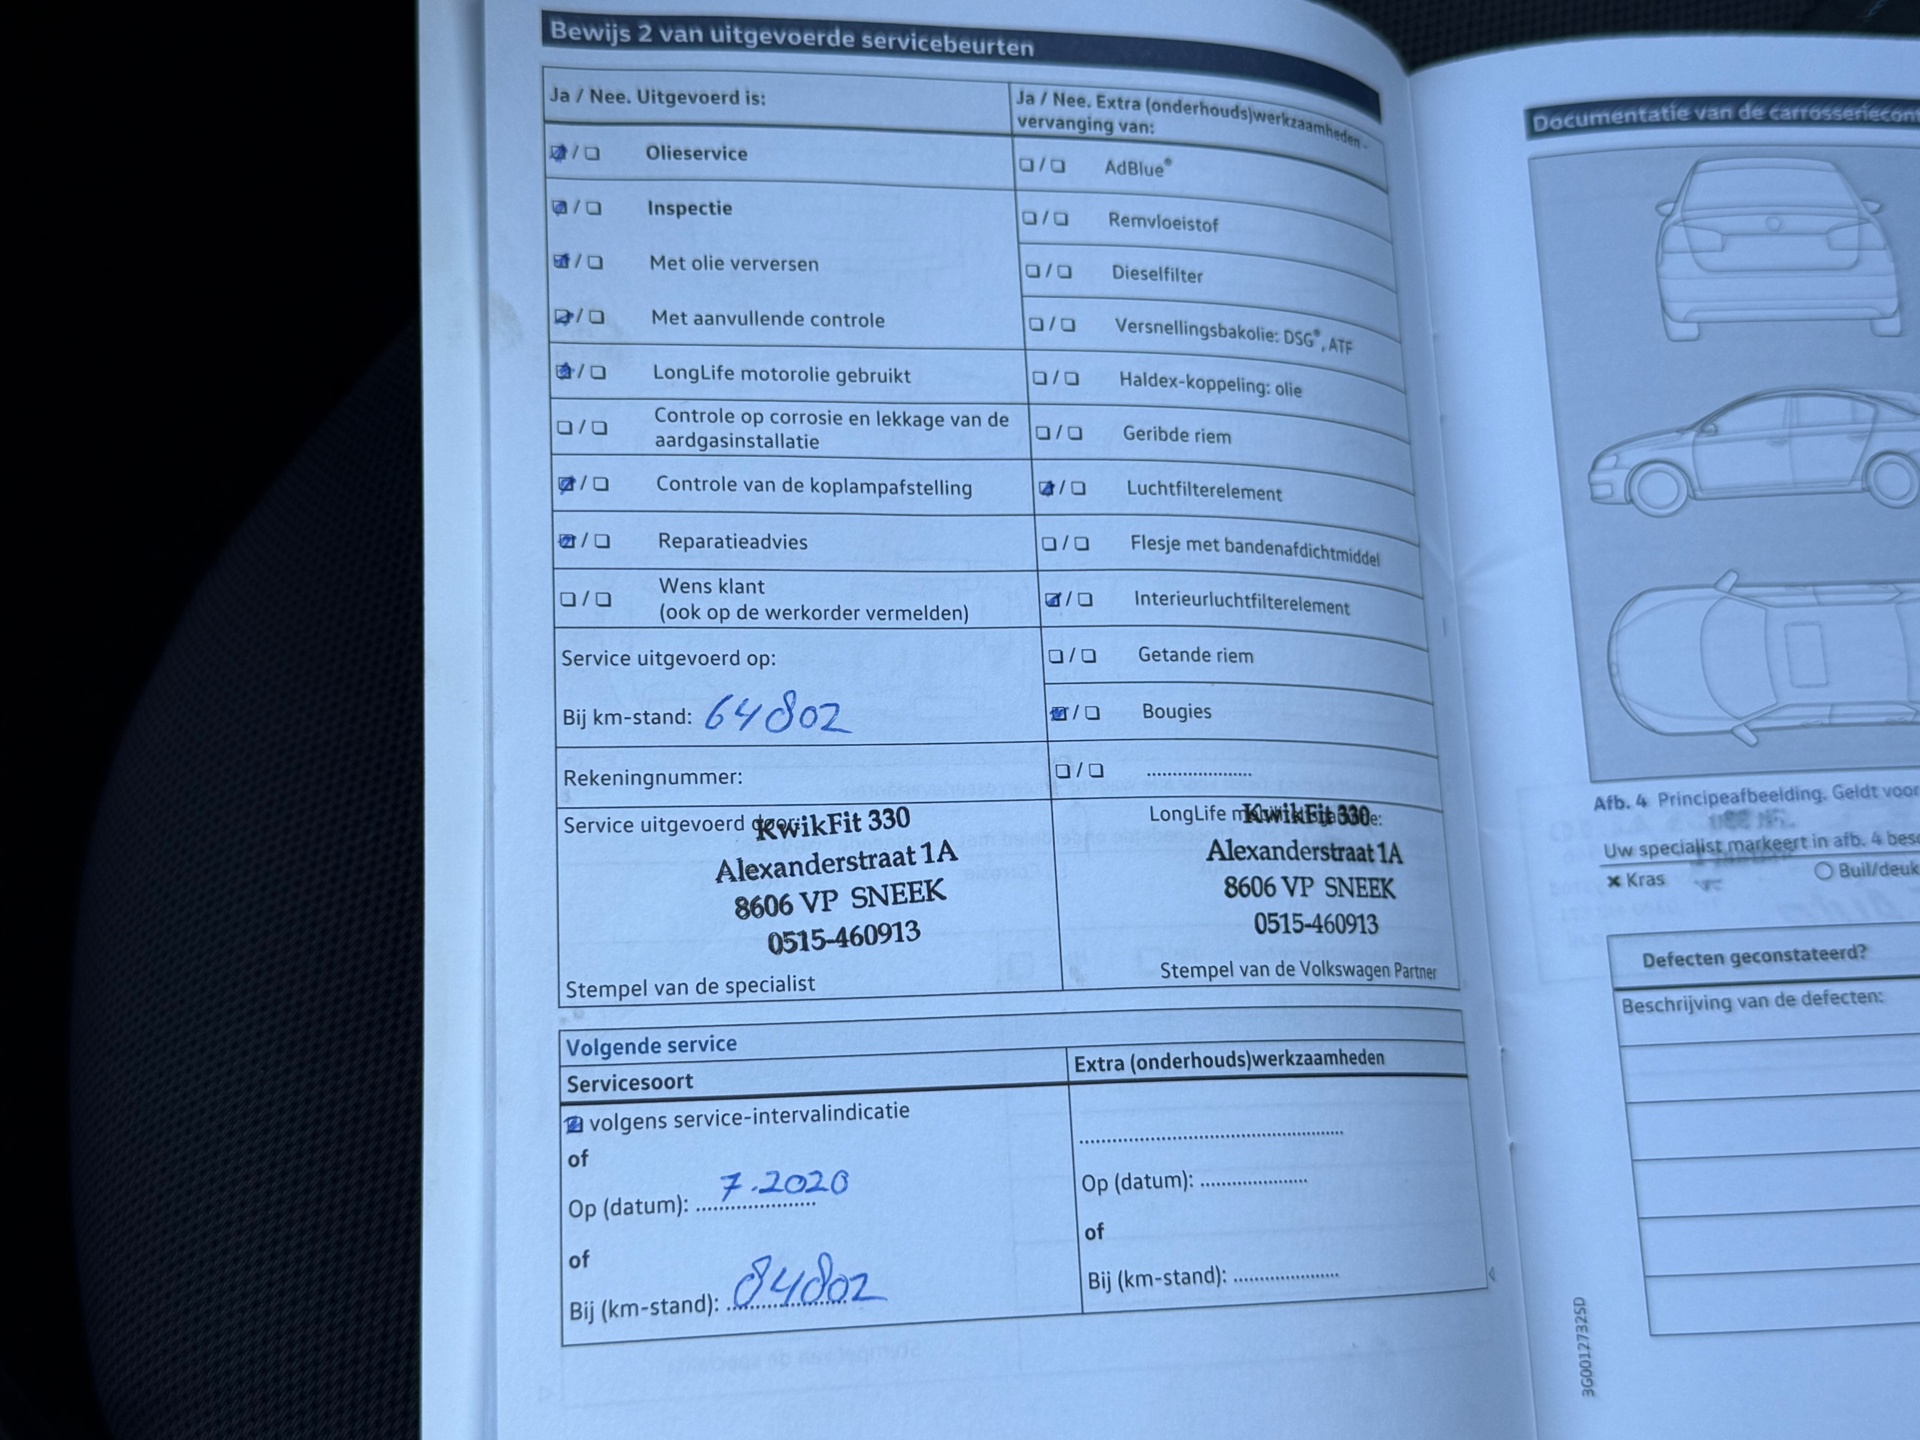 Bewijs 2 van uitgevoerde servicebeurten
Ja / Nee. Uitgevoerd is:
Olieservice
Inspectie
Met olie verversen
Met aanvullende controle
LongLife motorolie gebruikt
Controle op corrosie en lekkage van de
aardgasinstallatie
Controle van de koplampafstelling
Reparatieadvies
Wens klant
(ook op de werkorder vermelden)
Service uitgevoerd op:
Bij km-stand: 64802
Rekeningnummer:
Service uitgevoerd door:
KwikFit 330
Alexanderstraat 1A
8606 VP SNEEK
0515-460913
Stempel van de specialist
Ja / Nee. Extra (onderhouds)werkzaamheden -
vervanging van:
AdBlue®
Remvloeistof
Dieselfilter
Versnellingsbakolie: DSG®, ATF
Haldex-koppeling: olie
Geribde riem
Luchtfilterelement
Flesje met bandenafdichtmiddel
Interieurluchtfilterelement
Getande riem
Bougies
LongLife
KwikFit 330
Alexanderstraat 1A
8606 VP SNEEK
0515-460913
Stempel van de Volkswagen Partner
Volgende service
Servicesoort
volgens service-intervalindicatie
of
Op (datum): 7.2020
of
Bij (km-stand): 84802
Extra (onderhouds)werkzaamheden
Op (datum):
of
Bij (km-stand):
Documentatie van de carrosseriecont
Afb. 4 Principeafbeelding. Geldt voor
Uw specialist markeert in afb. 4 besc
× Kras
Buil/deuk
Defecten geconstateerd?
Beschrijving van de defecten:
3G0012732SD